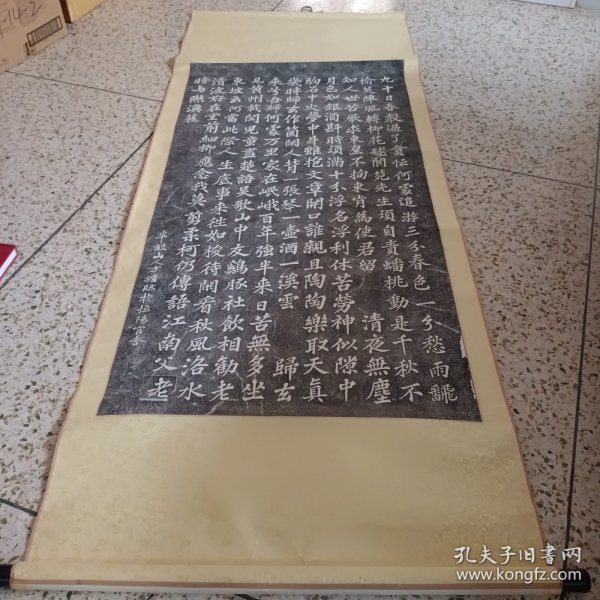 九十日春都過了貪忙何處追游三分春色一分愁雨飜
榆莢陣風轉柳花毬閬苑先生須自責蟠桃動是千秋不
知人世苦厭求東皇不拘束肯為使君留 清夜無塵
月色如銀酒斟時須滿十分浮名浮利休苦勞神似隙中
駒石中火夢中身雖抱文章開口誰親且陶陶樂取天真
幾時歸去作箇閒人背一張琴一壺酒一溪雲 歸去
來兮吾歸何處万里家在岷峨百年強半來日苦無多坐
見黃州再閏兒童盡楚語吳歌山中友雞豚社飲相勸老
東坡云何當此際人生底事來往如梭待閒看秋風洛水
清波好在堂前細柳應念我莫剪柔柯仍傳語江南父老
時與曬漁蓑
山人方塘臨於恒陽
-14-2
孔夫子旧書网
www.kongfz.com